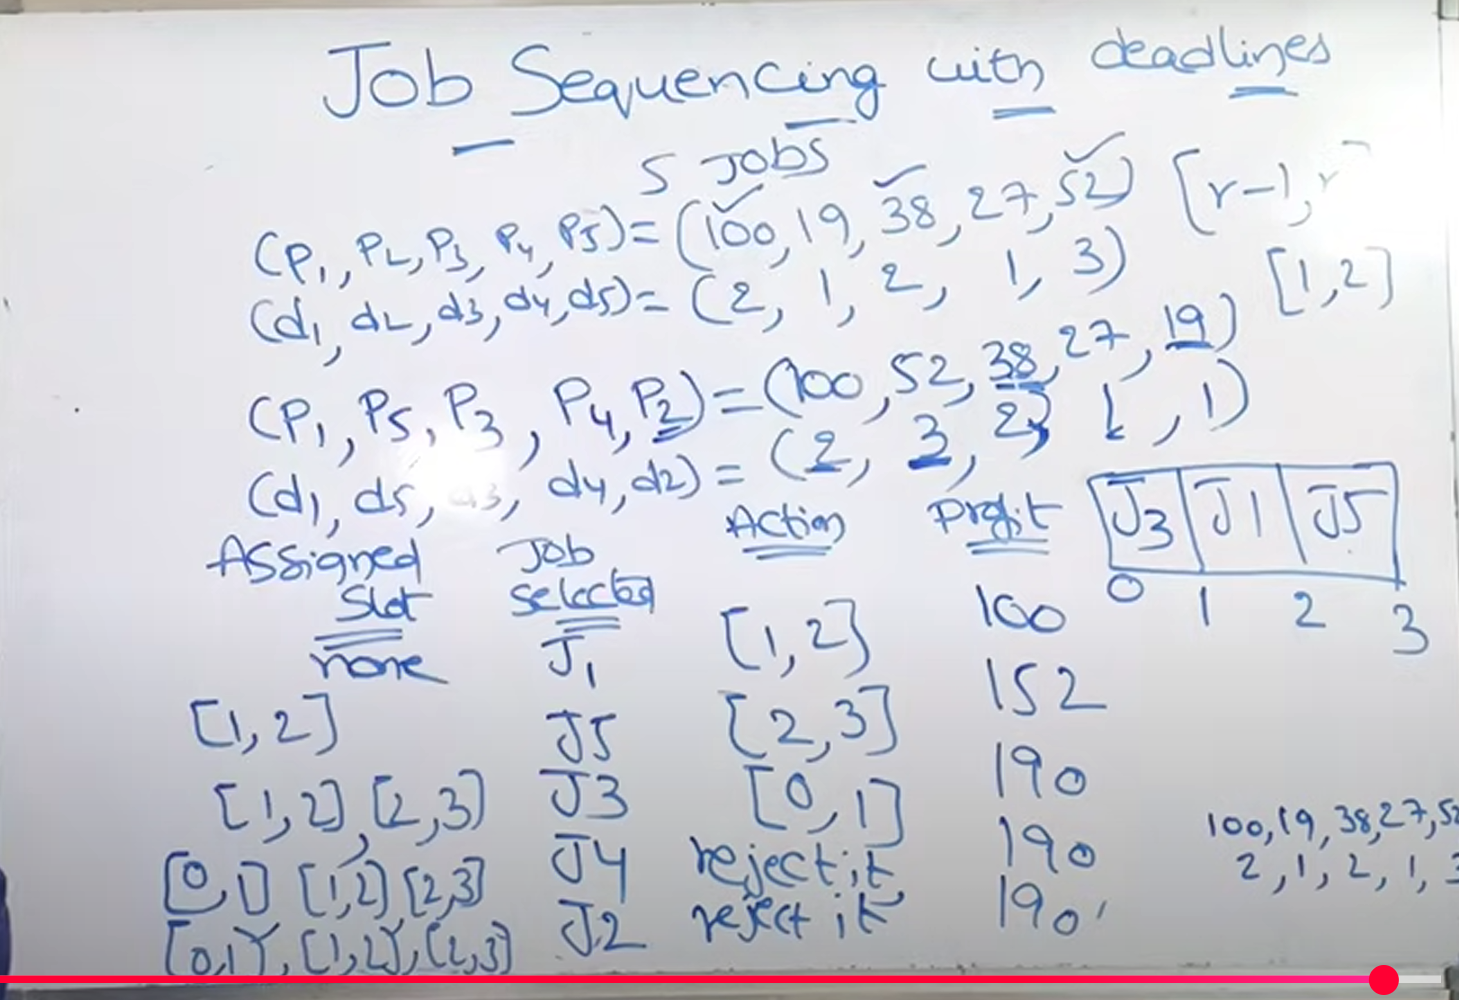 Job Sequencing with deadlines
5 JOBS
(P1, P2, P3, P4, P5) = (100, 19, 38, 27, 52) [r-1, r
(d1, d2, d3, d4, d5) = (2, 1, 2, 1, 3) [1,2]
(P1, P5, P3, P4, P2) = (100, 52, 38, 27, 19)
(d1, d5, d3, d4, d2) = (2, 3, 2, 1, 1)
Assigned Slot Job Selected Action Profit
J3 J1 J5
0 1 2 3
none J1 [1,2] 100
[1,2] J5 [2,3] 152
[1,2], [2,3] J3 [0,1] 190
[0,1] [1,2], [2,3] J4 reject it 190
[0,1], [1,2], [2,3] J2 reject it 190
100, 19, 38, 27, 52
2, 1, 2, 1, 3